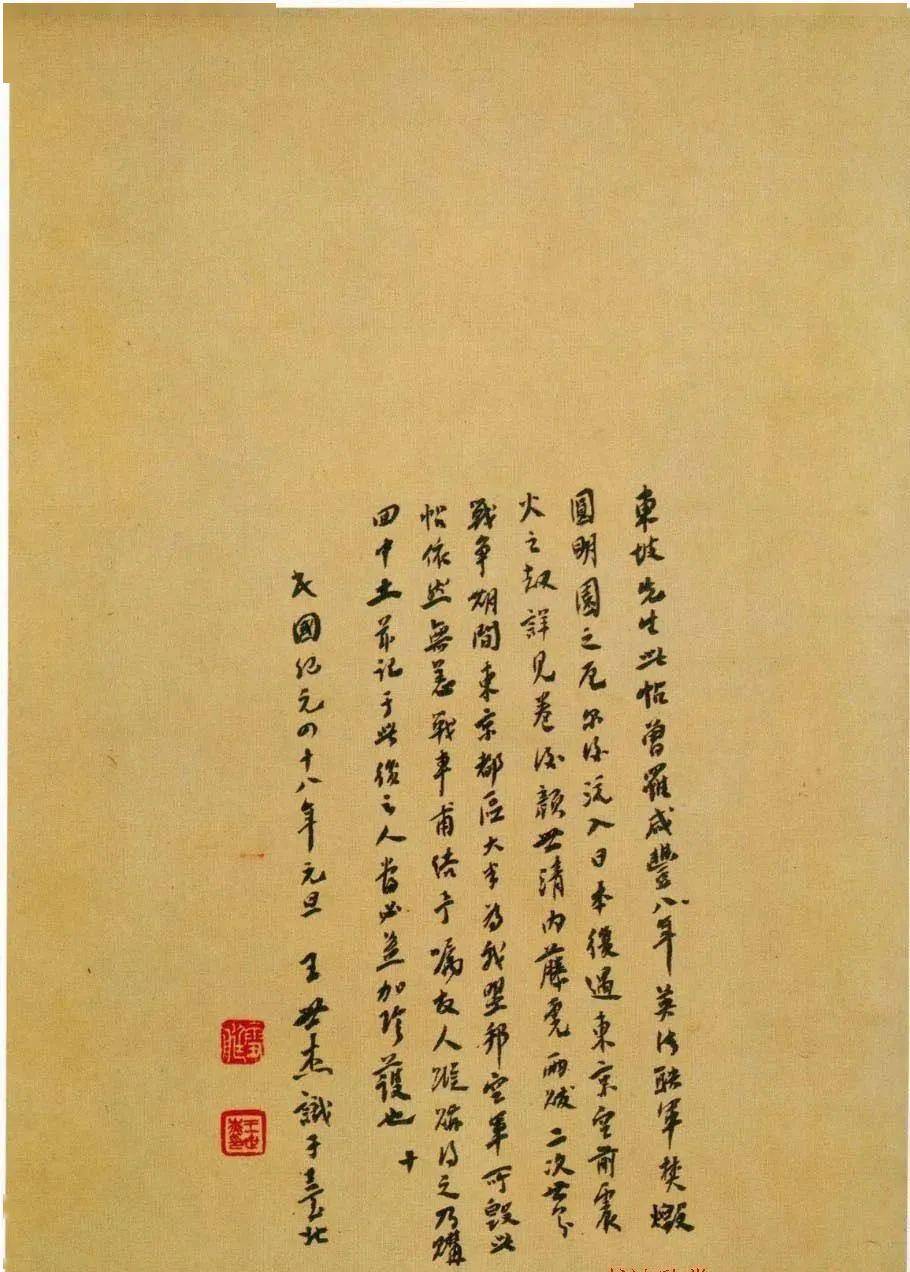 東坡先生此帖曾罹咸豐八年英法聯軍焚燬
圓明園之厄爾後流入日本復遇東京空前震
火之劫詳見卷後顏世清內藤虎兩跋二次世界
戰爭期間東京都區大半為我盟邦空軍所毀此
帖依然無恙戰事甫結予囑友人蹤跡得之乃購
回中土並記于此後之人當必益加珍護也 十
民國紀元四十八年元旦 王世杰識于臺北
雪艇
王世杰